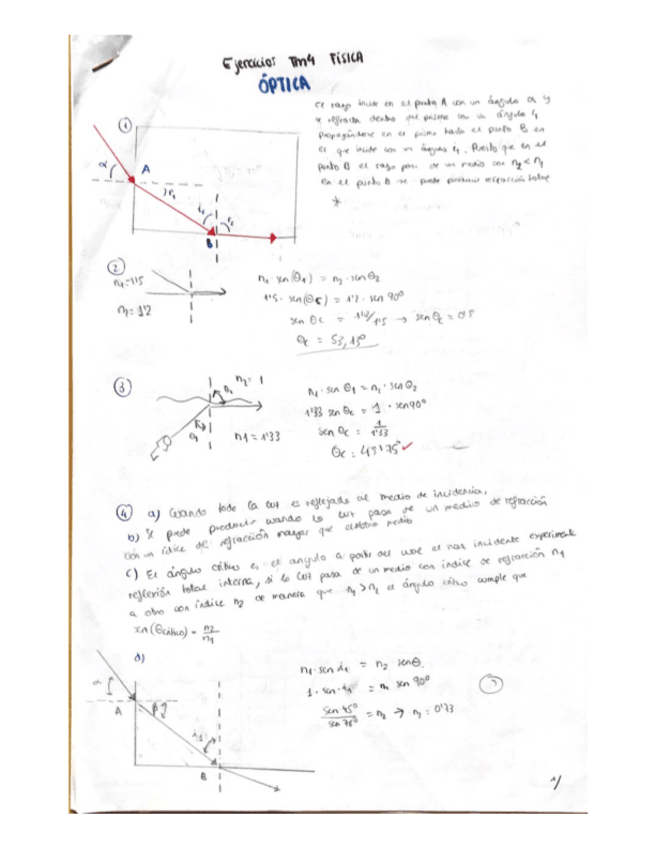 Ejercicios Tm4 Física
ÓPTICA
①
El rayo incide en el punto A con un ángulo α y
se refracta dentro del prisma con un ángulo r1
Propagándose en el prisma hasta el punto B en
el que incide con un ángulo i1. Puesto que en el
punto B el rayo pasa de un medio con n2 < n1
en el punto B se puede producir total
*
α
A
r1
i1
r2
B
②
n1=1'5
n2=1'2
n1 · sen(θ1) = n2 · sen θ2
1'5 · sen(θc) = 1'2 · sen 90º
sen θc = 1'2/1'5 → sen θc = 0'8
θc = 53,13º
③
n2 = 1
n1 = 1'33
n1 · sen θ1 = n2 · sen θ2
1'33 sen θc = 1 · sen90º
sen θc = 1/1'33
θc = 48'75º ✓
④ a) Cuando toda la luz es reflejada al medio de incidencia.
b) Se puede producir cuando la luz pasa de un medio de refracción
con un ídice de refracción mayor que el otro medio
c) El ángulo crítico es el angulo a partir del cual el rayo incidente experimenta
reflexión total interna, si la luz pasa de un medio con índice de refracción n1
a otro con índice n2 de manera que n1 > n2 el ángulo crítico cumple que
sen(θcrítico) = n2/n1
d)
α
A
β
i1
B
n1 · sen i1 = n2 senθ
1 · sen · = n2 sen 90º
sen 45º/sen 76º = n2 → n2 = 0'73
?
1/